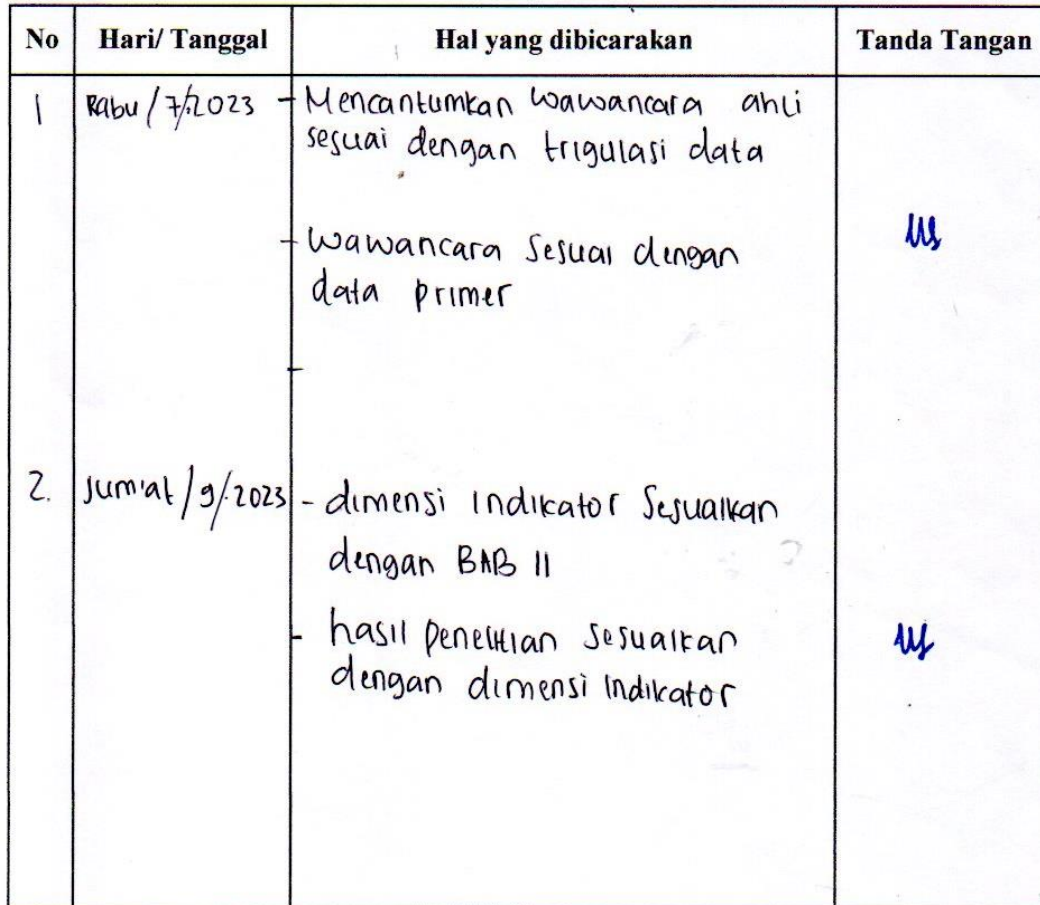 No Hari/ Tanggal Hal yang dibicarakan Tanda Tangan
1 Rabu / 7/.2023 - Mencantumkan wawancara ahli
sesuai dengan trigulasi data
- wawancara sesuai dengan
data primer
-
2. Jum'at / 9/.2023 - dimensi indikator sesuaikan
dengan BAB II
- hasil penelitian sesuaikan
dengan dimensi indikator